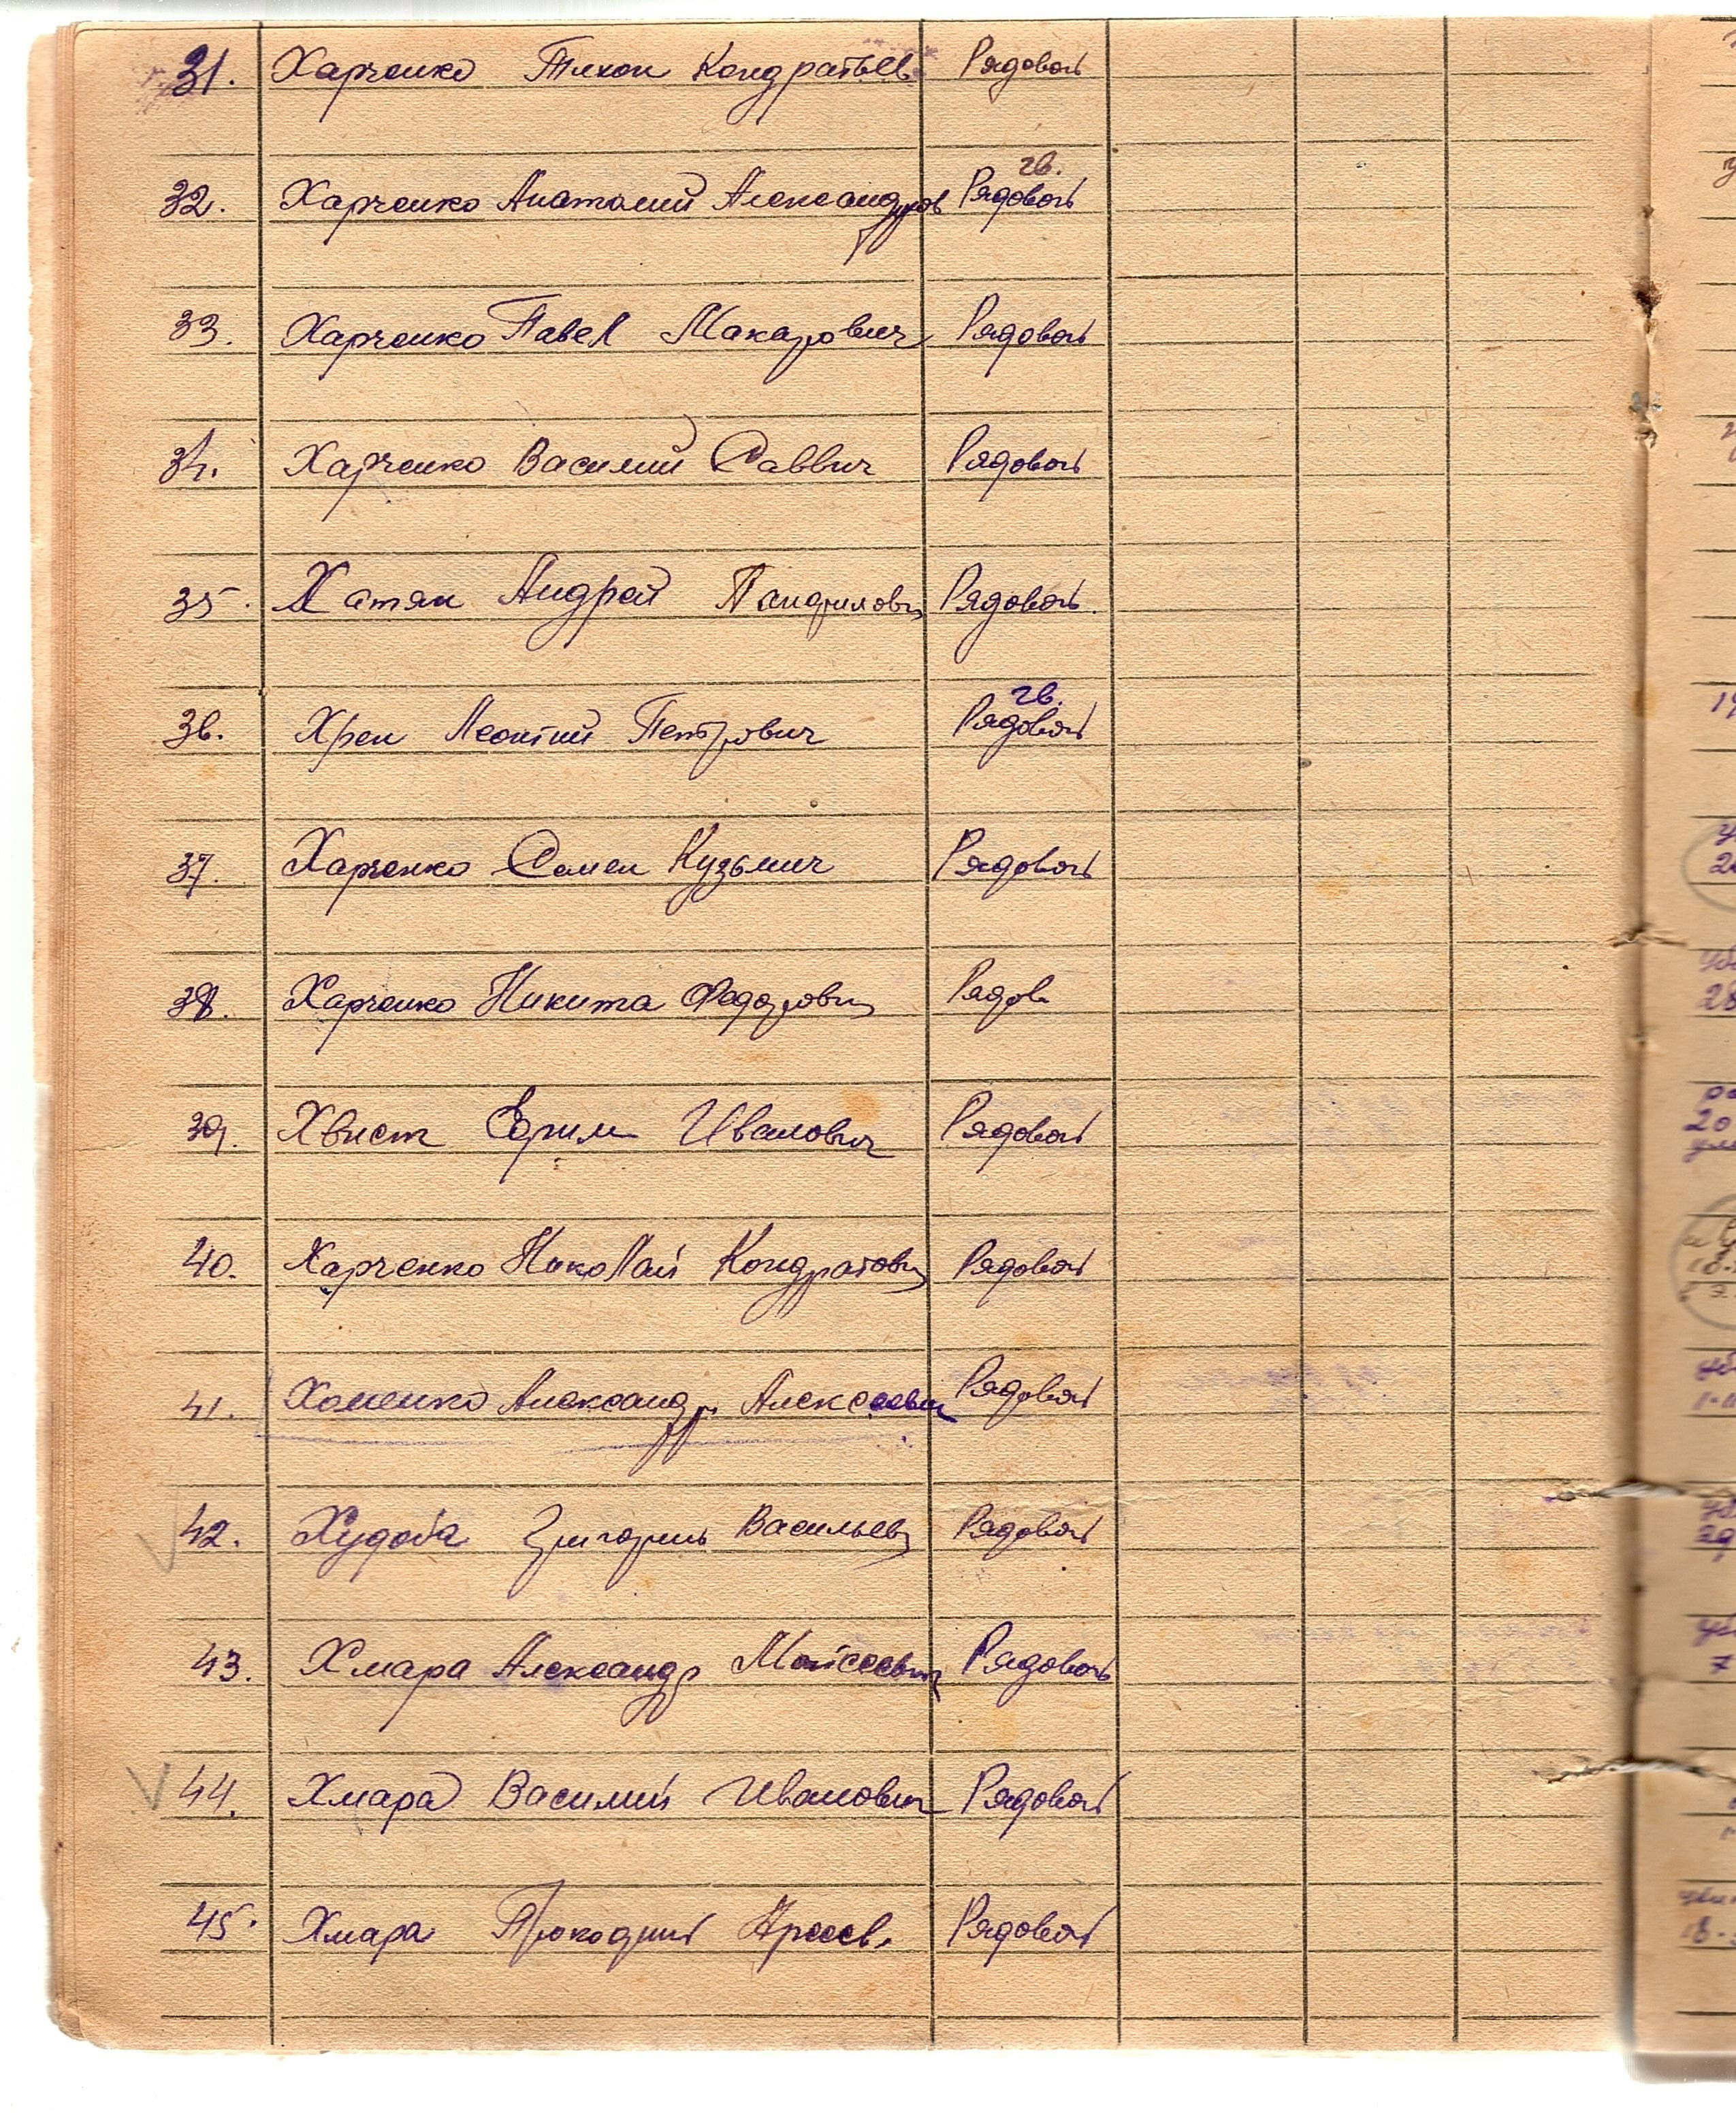 31. Харченко Тихон Кондратьев Рядовой
гв.
32. Харченко Анатолий Александров Рядовой
33. Харченко Павел Макарович Рядовой
34. Харченко Василий Саввич Рядовой
35. Хатян Андрей Панфилович Рядовой.
гв.
36. Хрен Леонтий Петрович Рядовой
37. Харченко Семен Кузьмич Рядовой
38. Харченко Никита Федорович Рядов
39. Хвист Ефим Иванович Рядовой
40. Харченко Николай Кондратович Рядовой
41. Хоменко Александр Алексеевич Рядовой
42. Худоба Григорий Васильев Рядовой
43. Хмара Александр Моисеевич Рядовой
44. Хмара Василий Иванович Рядовой
45. Хмара Прокофий Рядовой